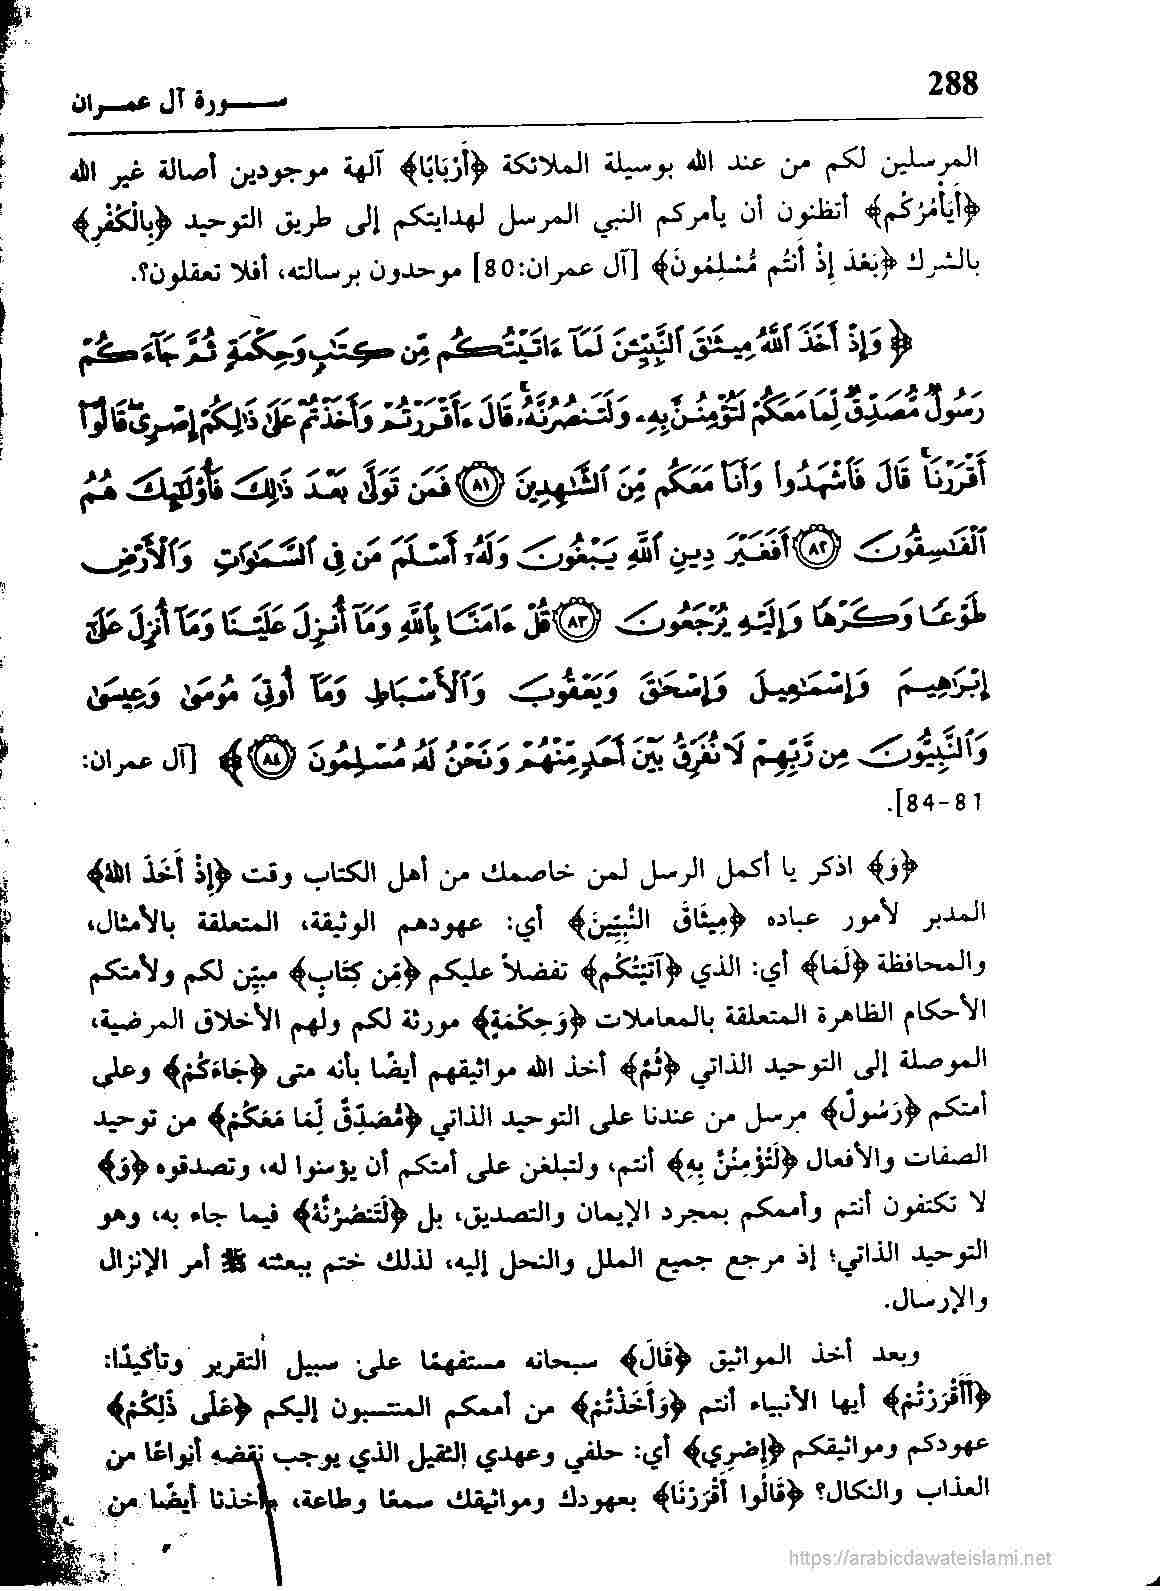 288
سورة آل عمران
المرسلين لكم من عند الله بوسيلة الملائكة ﴿أَرْبَابًا﴾ آلهة موجودين أصالة غير الله
﴿أَيَأْمُرُكُم﴾ أتظنون أن يأمركم النبي المرسل لهدايتكم إلى طريق التوحيد ﴿بِالْكُفْرِ﴾
بالشرك ﴿بَعْدَ إِذْ أَنتُم مُّسْلِمُونَ﴾ [آل عمران:80] موحدون برسالته، أفلا تعقلون؟.
﴿ وَإِذْ أَخَذَ ٱللَّهُ مِيثَٰقَ ٱلنَّبِيِّـۧنَ لَمَآ ءَاتَيْتُكُم مِّن كِتَٰبٍ وَحِكْمَةٍ ثُمَّ جَآءَكُمْ
رَسُولٌ مُّصَدِّقٌ لِّمَا مَعَكُمْ لَتُؤْمِنُنَّ بِهِۦ وَلَتَنصُرُنَّهُۥ ۚ قَالَ ءَأَقْرَرْتُمْ وَأَخَذْتُمْ عَلَىٰ ذَٰلِكُمْ إِصْرِى ۖ قَالُوٓا۟
أَقْرَرْنَا ۚ قَالَ فَٱشْهَدُوا۟ وَأَنَا۠ مَعَكُم مِّنَ ٱلشَّٰهِدِينَ ٨١ فَمَن تَوَلَّىٰ بَعْدَ ذَٰلِكَ فَأُو۟لَٰٓئِكَ هُمُ
ٱلْفَٰسِقُونَ ٨٢ أَفَغَيْرَ دِينِ ٱللَّهِ يَبْغُونَ وَلَهُۥٓ أَسْلَمَ مَن فِى ٱلسَّمَٰوَٰتِ وَٱلْأَرْضِ
طَوْعًا وَكَرْهًا وَإِلَيْهِ يُرْجَعُونَ ٨٣ قُلْ ءَامَنَّا بِٱللَّهِ وَمَآ أُنزِلَ عَلَيْنَا وَمَآ أُنزِلَ عَلَىٰٓ
إِبْرَٰهِيمَ وَإِسْمَٰعِيلَ وَإِسْحَٰقَ وَيَعْقُوبَ وَٱلْأَسْبَاطِ وَمَآ أُوتِىَ مُوسَىٰ وَعِيسَىٰ
وَٱلنَّبِيُّونَ مِن رَّبِّهِمْ لَا نُفَرِّقُ بَيْنَ أَحَدٍ مِّنْهُمْ وَنَحْنُ لَهُۥ مُسْلِمُونَ ٨٤ ﴾ [آل عمران:
81-84].
﴿وَ﴾ اذكر يا أكمل الرسل لمن خاصمك من أهل الكتاب وقت ﴿إِذْ أَخَذَ اللهُ﴾
المدبر لأمور عباده ﴿مِيثَاقَ النَّبِيِّينَ﴾ أي: عهودهم الوثيقة، المتعلقة بالأمثال،
والمحافظة ﴿لَمَا﴾ أي: الذي ﴿آتَيْتُكُم﴾ تفضلاً عليكم ﴿مِّن كِتَابٍ﴾ مبيّن لكم ولأمتكم
الأحكام الظاهرة المتعلقة بالمعاملات ﴿وَحِكْمَةٍ﴾ مورثة لكم ولهم الأخلاق المرضية،
الموصلة إلى التوحيد الذاتي ﴿ثُمَّ﴾ أخذ الله مواثيقهم أيضًا بأنه متى ﴿جَاءَكُمْ﴾ وعلى
أمتكم ﴿رَسُولٌ﴾ مرسل من عندنا على التوحيد الذاتي ﴿مُّصَدِّقٌ لِّمَا مَعَكُمْ﴾ من توحيد
الصفات والأفعال ﴿لَتُؤْمِنُنَّ بِهِ﴾ أنتم، ولتبلغن على أمتكم أن يؤمنوا له، وتصدقوه ﴿وَ﴾
لا تكتفون أنتم وأممكم بمجرد الإيمان والتصديق، بل ﴿لَتَنصُرُنَّهُ﴾ فيما جاء به، وهو
التوحيد الذاتي؛ إذ مرجع جميع الملل والنحل إليه، لذلك ختم ببعثته ﷺ أمر الإنزال
والإرسال.
وبعد أخذ المواثيق ﴿قَالَ﴾ سبحانه مستفهمًا على سبيل التقرير وتأكيدًا:
﴿أَأَقْرَرْتُمْ﴾ أيها الأنبياء أنتم ﴿وَأَخَذْتُمْ﴾ من أممكم المنتسبون إليكم ﴿عَلَى ذَلِكُمْ﴾
عهودكم ومواثيقكم ﴿إِصْرِي﴾ أي: حلفي وعهدي الثقيل الذي يوجب نقضه أنواعًا من
العذاب والنكال؟ ﴿قَالُوا أَقْرَرْنَا﴾ بعهودك ومواثيقك سمعًا وطاعة، وأخذنا أيضًا من
https://arabicdawateislami.net